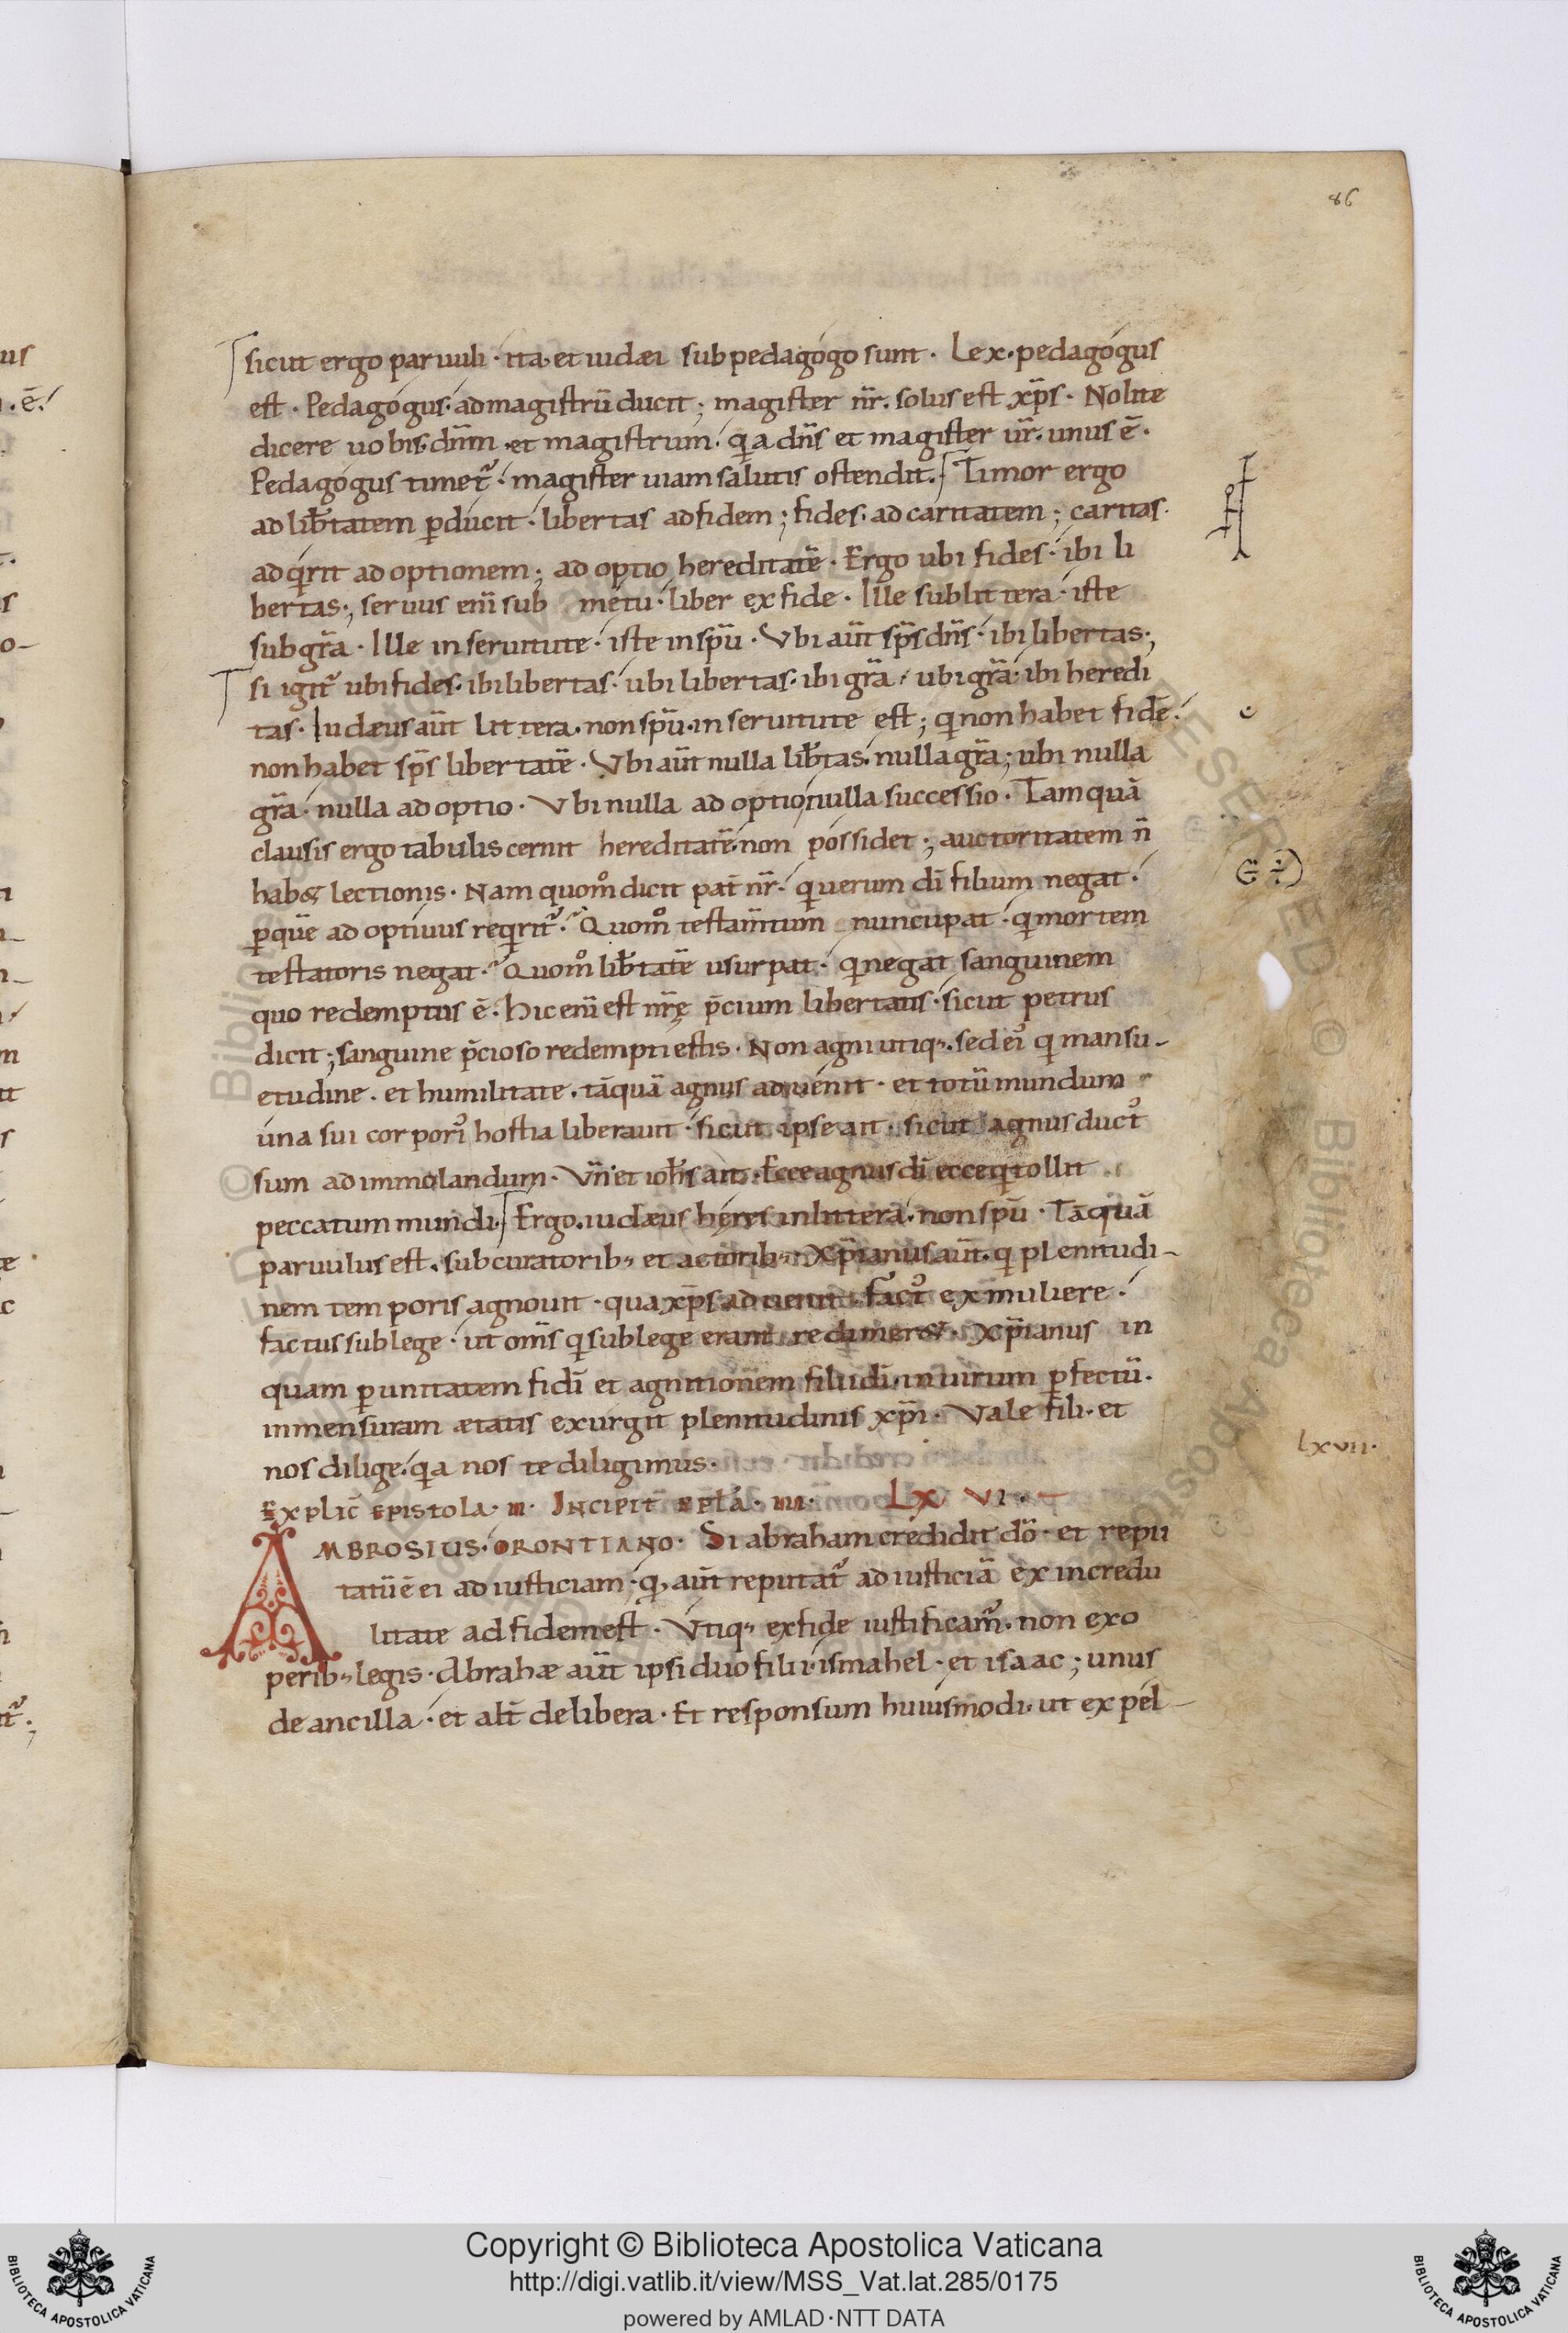 86
sicut ergo paruuli · ita et iudæi sub pedagogo sunt · Lex · pedagogus
est · Pedagogus · ad magistrū ducit ; magister nr̄ · solus est xp̄s · Nolite
dicere uobis dn̄m · et magistrum · q̄a dn̄s et magister ur̄ · unus ē ·
Pedagogus timet᷑ · magister uiam salutis ostendit · Timor ergo
ad lib̄tatem p̱ducit · libertas ad fidem ; fides · ad caritatem ; caritas ·
adq̇rit adoptionem ; adoptio hereditatē · Ergo ubi fides · ibi li
bertas ; seruus eni᷑ sub metu · liber ex fide · Ille sub littera · iste
sub gr̄a · Ille in seruitute · iste in spū · Vbi aūt sp̄s dn̄s · ibi libertas ;
si igit᷑ ubi fides · ibi libertas · ubi libertas · ibi gr̄a · ubi gr̄a · ibi heredi
tas · Iudæus aūt littera · non spū · in seruitute est ; q̇ non habet fidē ·
non habet sp̄s libertatē · Vbi aūt nulla lib̄tas · nulla gr̄a ; ubi nulla
gr̄a · nulla adoptio · Vbi nulla adoptio nulla successio · Tamquā
clausis ergo tabulis cernit hereditatē · non possidet ; auctoritatem n̄
hab& lectionis · Nam quom̊ dicit pat̄ nr̄ · q̇ uerum dī filium negat ·
p̱ quē adoptiuus req̇rit᷑ · Quom̊ testam̄tum nuncupat · q̇ mortem
testatoris negat · Quom̊ lib̄tatē usurpat · q̇ negat sanguinem
quo redemptus ē · Hic eni᷑ est nr̄ę p̄cium libertatis · sicut petrus
dicit ; sanguine p̄cioso redempti estis · Non agni utiq · sed ei᷒ q̇ mansu-
etudine · et humilitate · tāquā agnus aduenit · et totū mundum
una sui corpori᷒ hostia liberauit · sicut ipse ait · sicut agnus duct᷒
sum ad immolandum · Vn̄ et ioh̄s ait · Ecce agnus dī ecce q̇ tollit
peccatum mundi · Ergo · iudæus heres in littera · non spū · Tāquā
paruulus est · sub curatorib; et actorib; · Xp̄ianus aūt · q̇ plenitudi-
nem temporis agnouit · qua xp̄s aduenit · fact᷒ ex muliere ·
factus sub lege · ut om̄s q̇ sub lege erant redimer& · Xp̄ianus in
quam p̱ unitatem fidī et agnitionem filii dī · in uirum p̱fectū ·
in mensuram ætatis exurgit plenitudinis xp̄i · Vale fili · et
nos dilige · q̄a nos te diligimus ·
Explic̄ epistola · II · Incipit ep̄la · III · LXVI ·
LXVII ·
AMBROSIUS · ORONTIANO · Si abraham credidit dō · et repu
tatū ē ei ad iusticiam · q̇ aūt reputat᷑ ad iusticiā ex incredu
litate ad fidem est · Vtiq; ex fide iustificam᷒ · non ex o
perib; legis · Abrahæ aūt ipsi duo filii · ismahel · et isaac ; unus
de ancilla · et alt̄ de libera · Et responsum huiusmodi · ut expel-
Copyright © Biblioteca Apostolica Vaticana
http://digi.vatlib.it/view/MSS_Vat.lat.285/0175
powered by AMLAD · NTT DATA